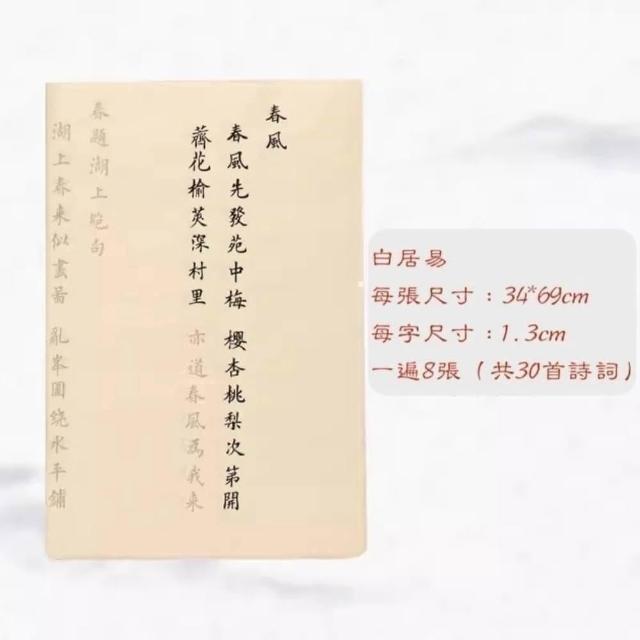 春風
春風先發苑中梅 櫻杏桃梨次第開
薺花榆莢深村里 亦道春風為我来
春題湖上絕句
湖上春来似畫圖 亂峯圍繞水平鋪
白居易
每張尺寸：34*69cm
每字尺寸：1.3cm
一遍8張（共30首詩詞）